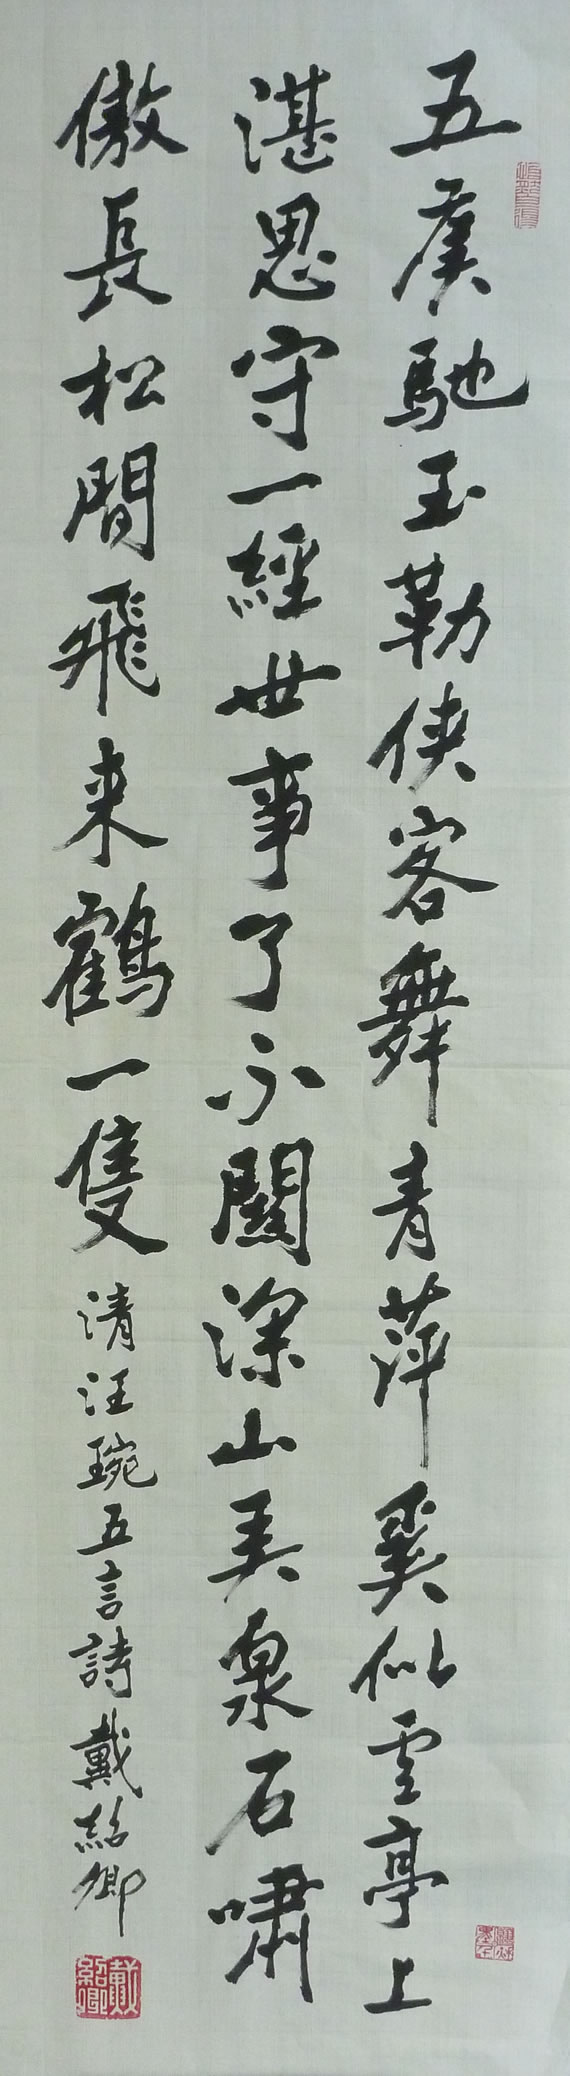 五侯馳玉勒俠客舞青萍奚似雲亭上
湛思守一經世事了不關深山美泉石嘯
傲長松間飛来鶴一隻清汪琬五言詩戴紹卿
戴紹卿